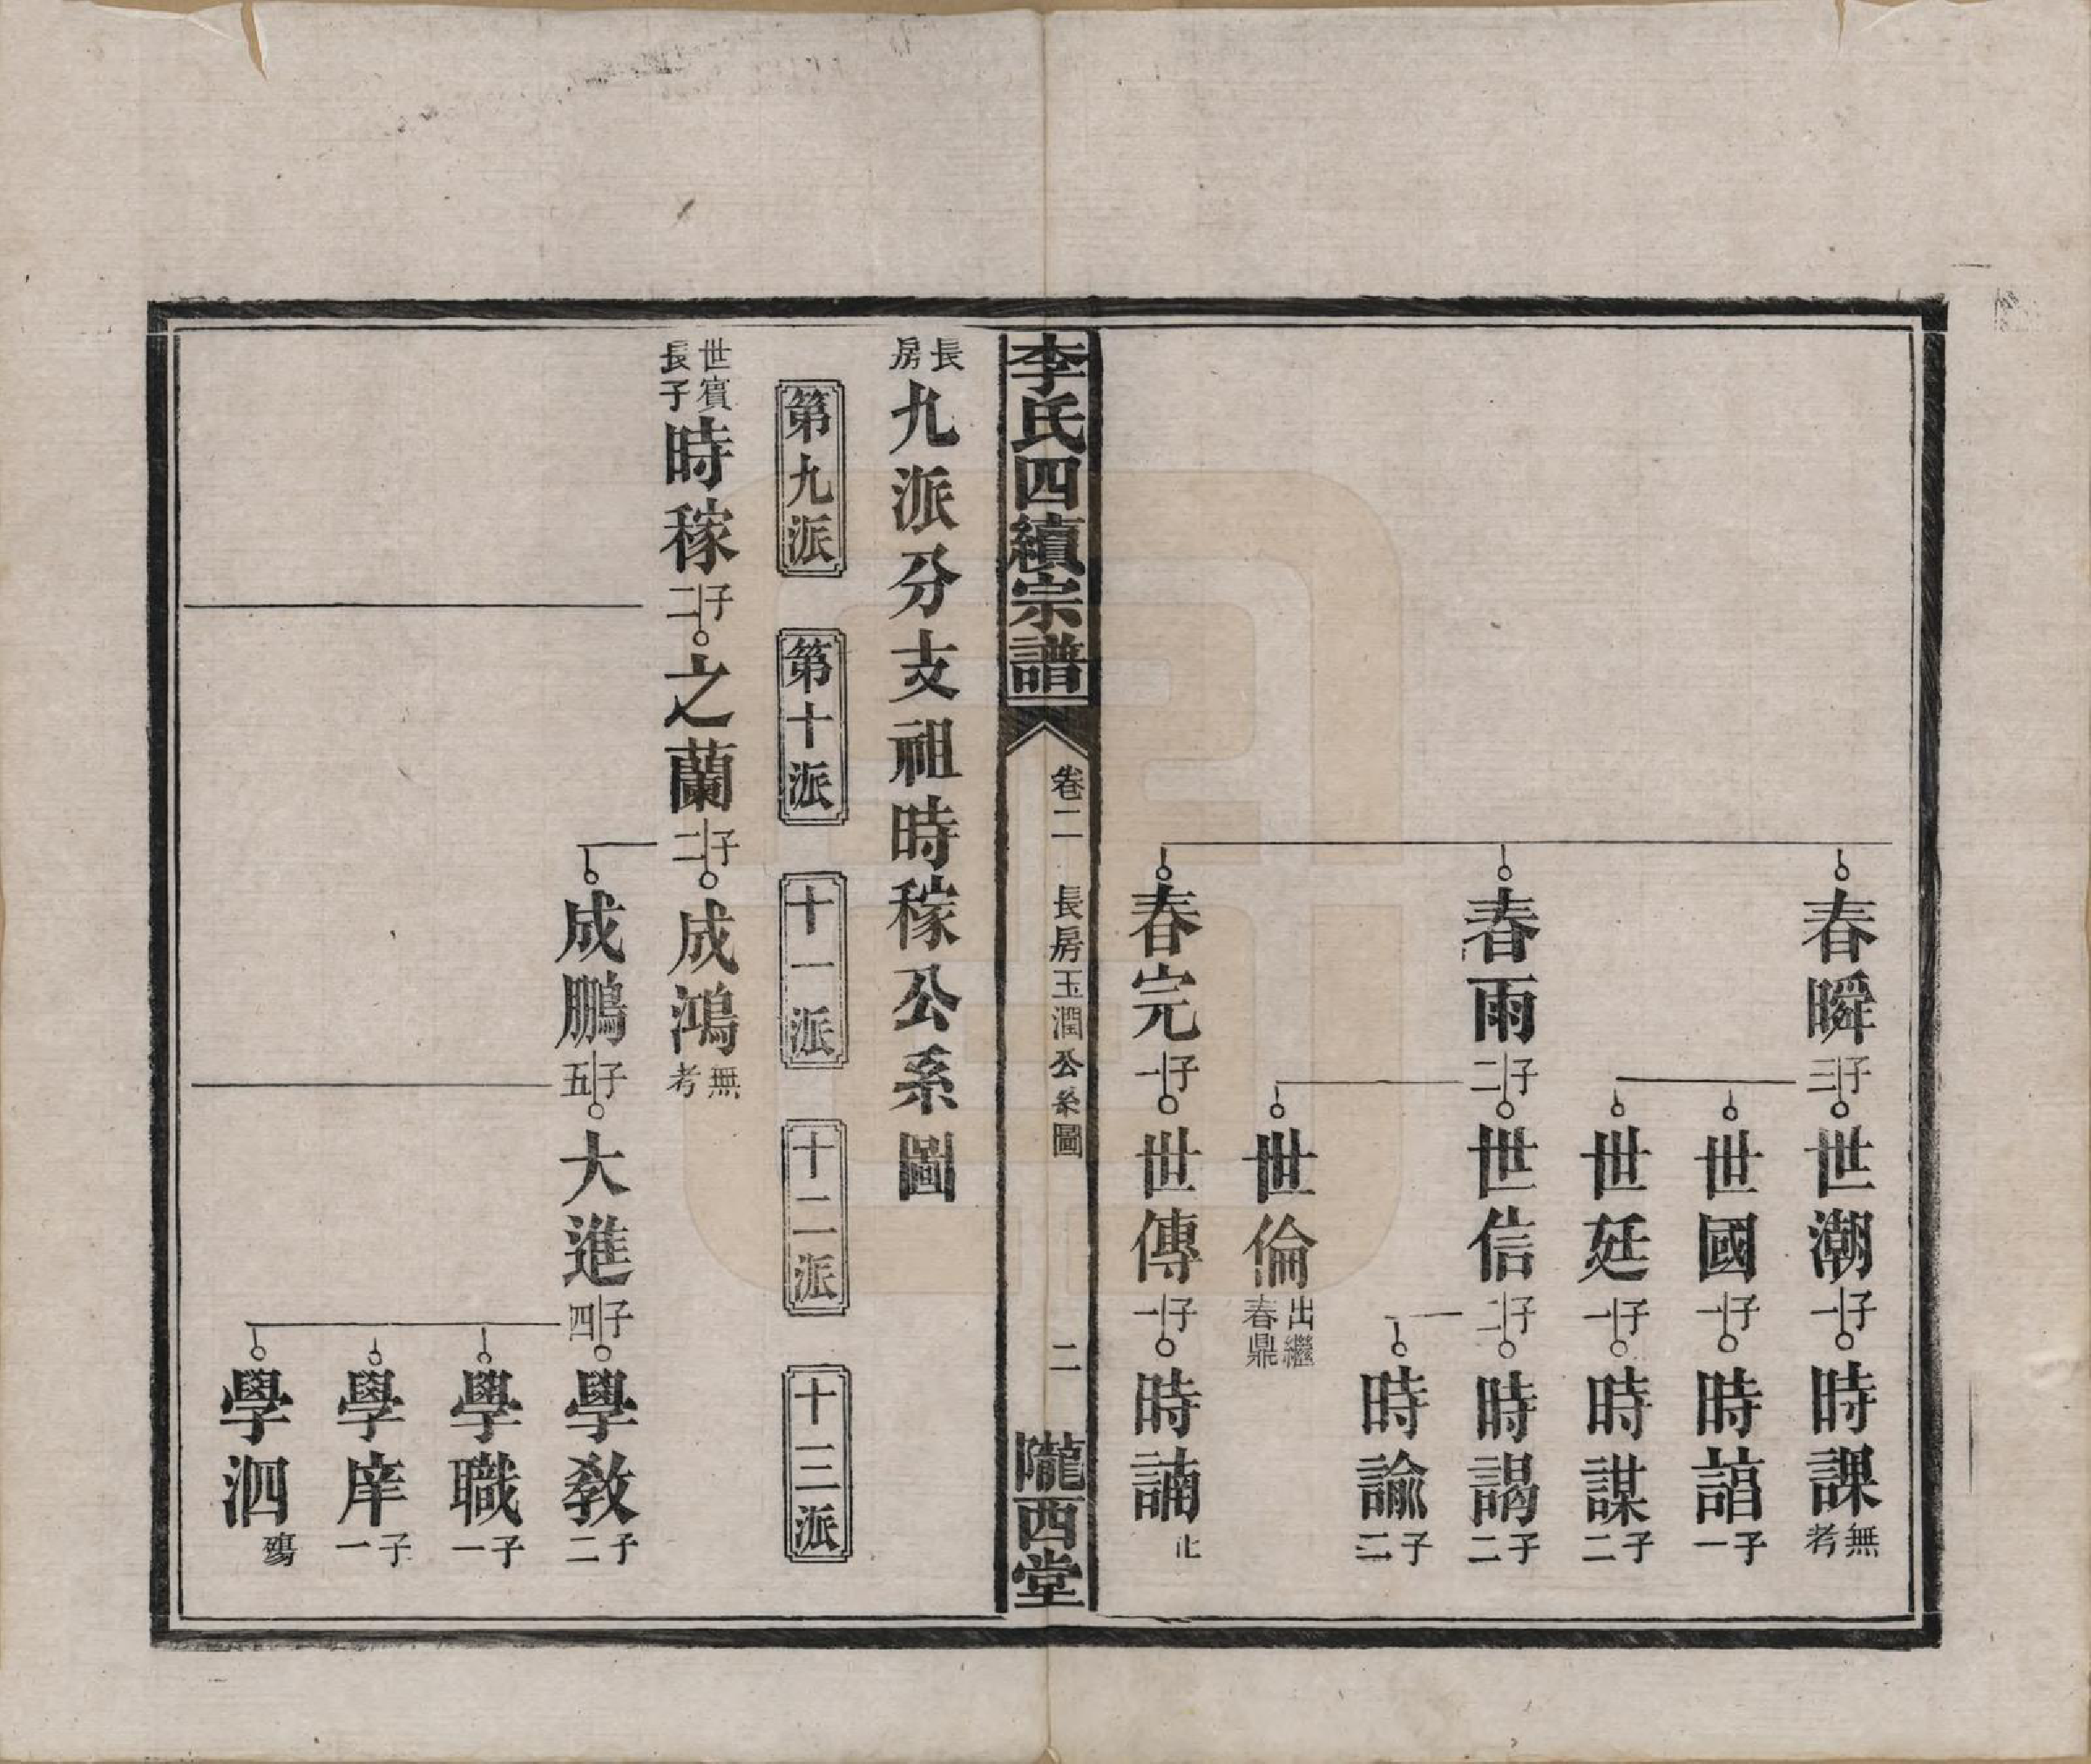 春瞬 子三 世潮 子一 時課 無考
世國 子一 時諳 子一
世廷 子一 時謀 子二
春雨 子二 世信 子二 時謁 子二
時諭 子二
世倫 出繼春鼎
春完 子一 世傳 子一 時諵 止
李氏四續宗譜 卷二 長房玉潤公系圖 二 隴西堂
長房 九派分支祖時稼公系圖
第九派 第十派 十一派 十二派 十三派
世賓長子 時稼 子二 之蘭 子二 成鴻 無考
成鵬 子五 大進 子四 學教 子二
學職 子一
學庠 子一
學泗 殤